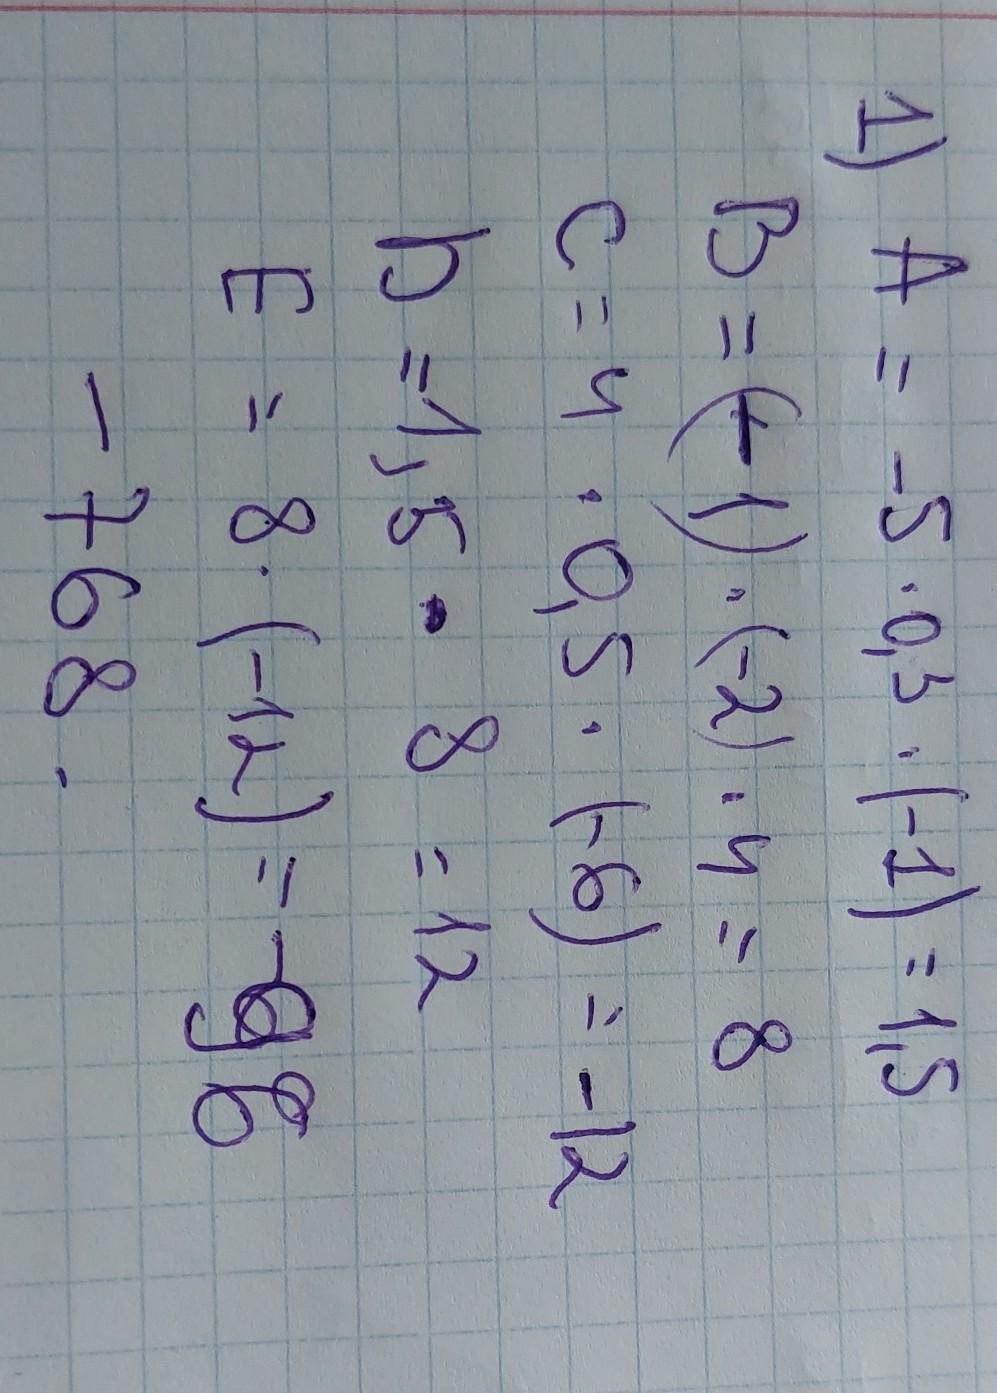 1) A = -5 · 0,3 · (-1) = 1,5
B = (-1) · (-2) · 4 = 8
C = 4 · 0,5 · (-6) = -12
D = 1,5 · 8 = 12
E = 8 · (-12) = -96
-768.